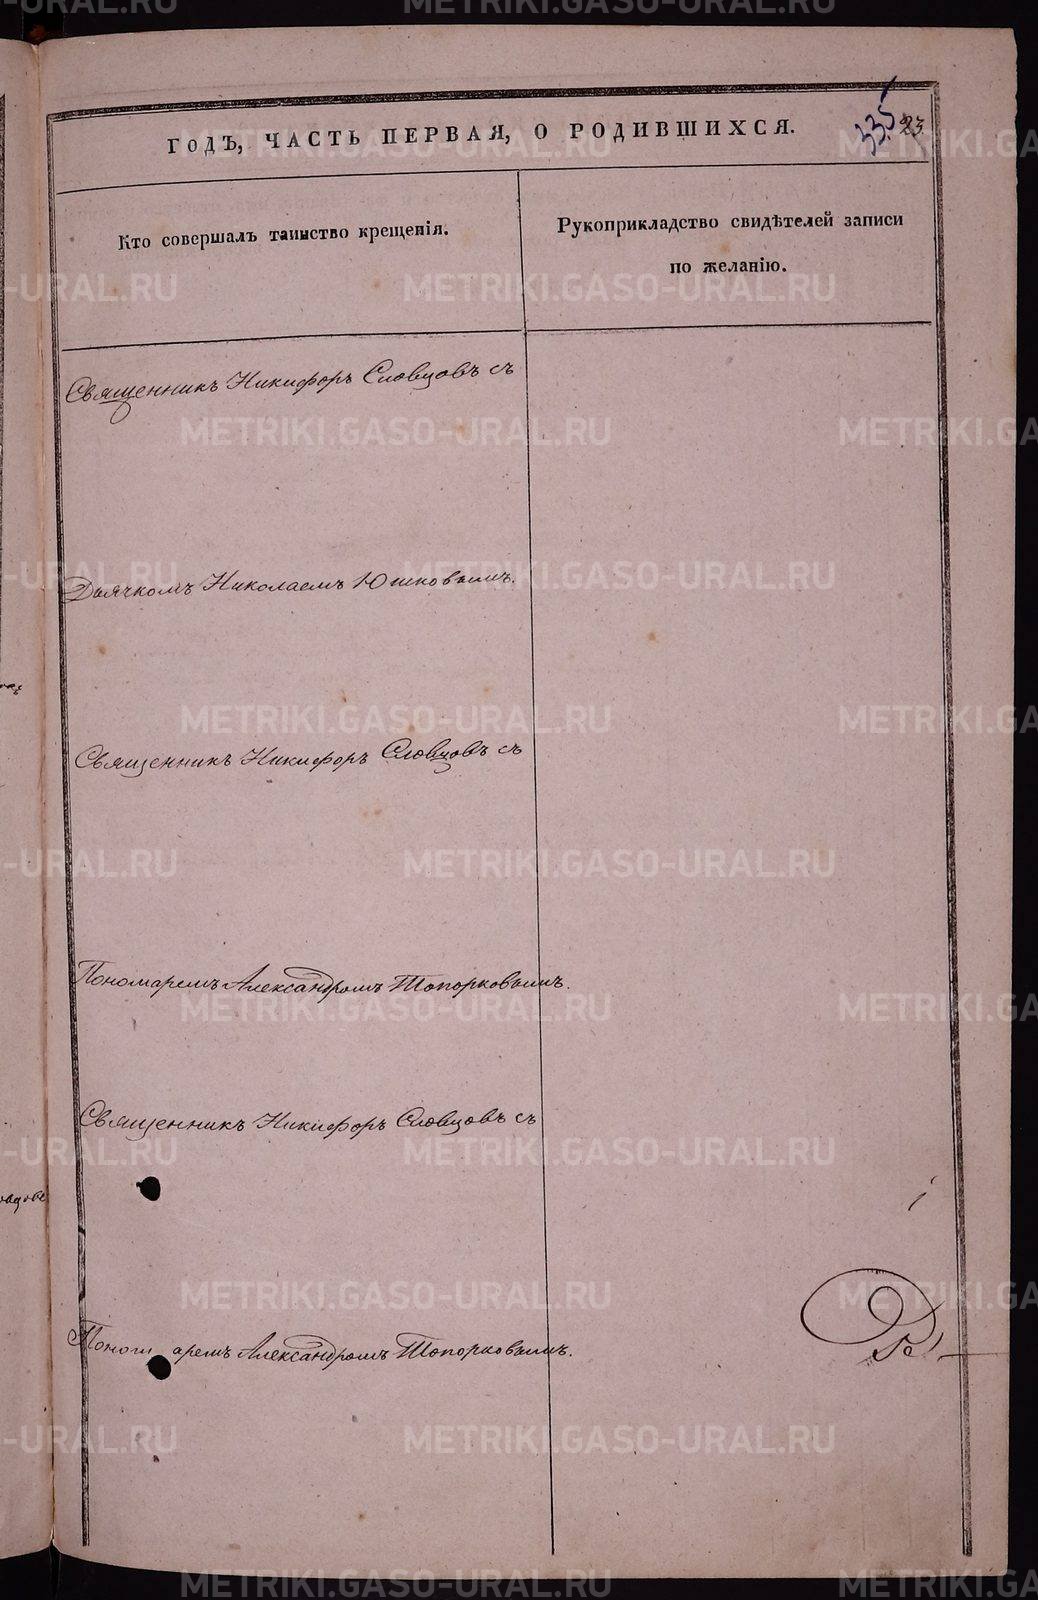 335
23.
ГОДЪ, ЧАСТЬ ПЕРВАЯ, О РОДИВШИХСЯ.
Кто совершалъ таинство крещенія.
Рукоприкладство свидѣтелей записи
по желанію.
Священникъ Никифоръ Словцовъ съ
Дьячкомъ Николаемъ Юшковымъ.
Священникъ Никифоръ Словцовъ съ
Пономаремъ Александромъ Топорковымъ.
Священникъ Никифоръ Словцовъ съ
Пономаремъ Александромъ Топорковымъ.
METRIKI.GASO-URAL.RU